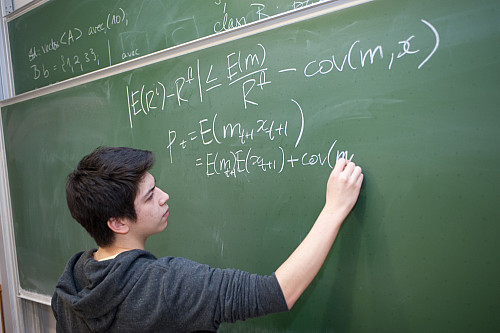 vector <A> avec (10),
Bb = {1, 2, 33, } avec
class B:
|E(Rⁱ)-R^f| ≤ E(m)/R^f - cov(m,x)
p_t = E(m_{t+1}x_{t+1})
= E(m_{t+1})E(x_{t+1}) + cov(m